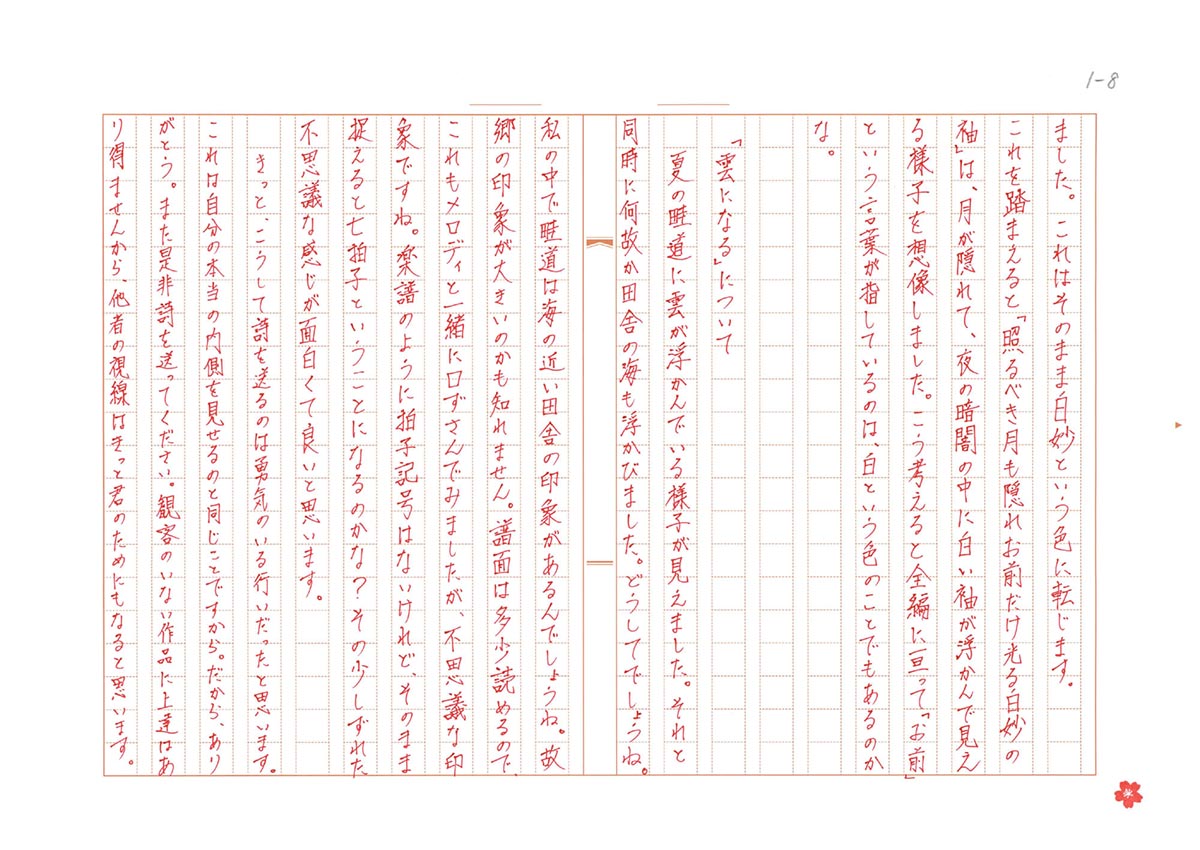 1-8
ました。これはそのまま白妙という色に転じます。
これを踏まえると「照るべき月も隠れお前だけ光る白妙の
袖」は、月が隠れて、夜の暗闇の中に白い袖が浮かんで見え
る様子を想像しました。こう考えると全編に亘って「お前」
という言葉が指しているのは、白という色のことでもあるのか
な。
「雲になる」について
夏の畦道に雲が浮かんでいる様子が見えました。それと
同時に何故か田舎の海も浮かびました。どうしてでしょうね。
私の中で畦道は海の近い田舎の印象があるんでしょうね。故
郷の印象が大きいのかも知れません。譜面は多少読めるので、
これもメロディと一緒に口ずさんでみましたが、不思議な印
象ですね。楽譜のように拍子記号はないけれど、そのまま
捉えると七拍子ということになるのかな？その少しずれた
不思議な感じが面白くて良いと思います。
きっと、こうして詩を送るのは勇気のいる行いだったと思います。
これは自分の本当の内側を見せるのと同じことですから。だから、あり
がとう。また是非詩を送ってください。観客のいない作品に上達はあ
り得ませんから、他者の視線はきっと君のためにもなると思います。